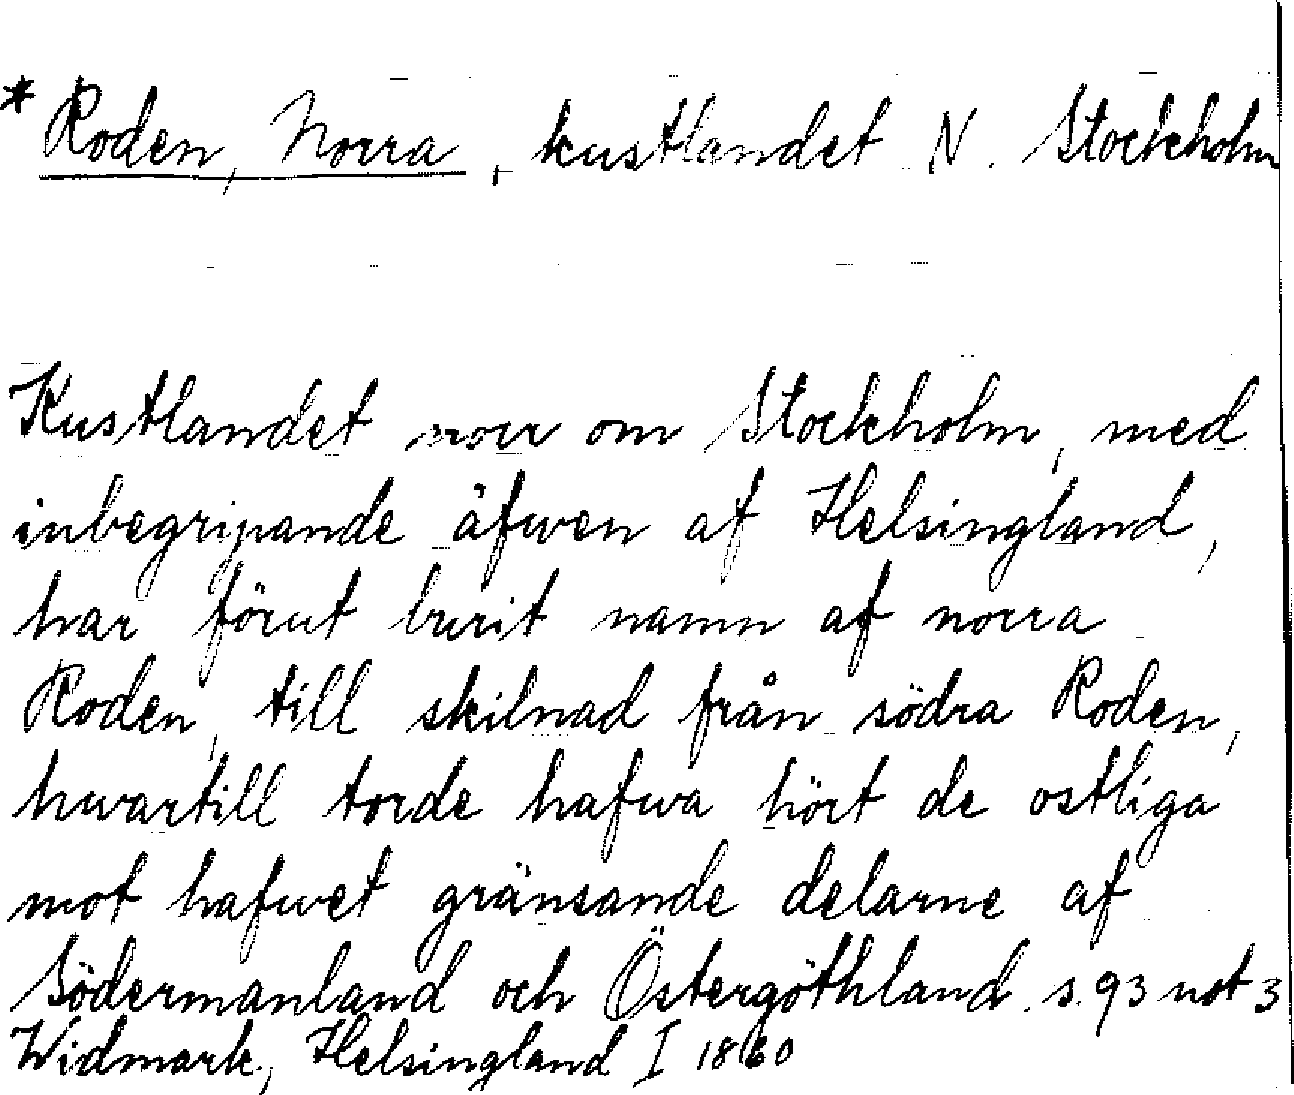 * Roden, Norra, kustlandet N. Stockholm
Kustlandet norr om Stockholm, med
inbegripande äfwen af Helsingland,
har förut burit namn af norra
Roden, till skilnad från södra Roden,
hwartill torde hafwa hört de ostliga
mot hafwet gränsande delarne af
Södermanland och Östergöthland. s. 93 not 3
Widmark, Helsingland I 1860